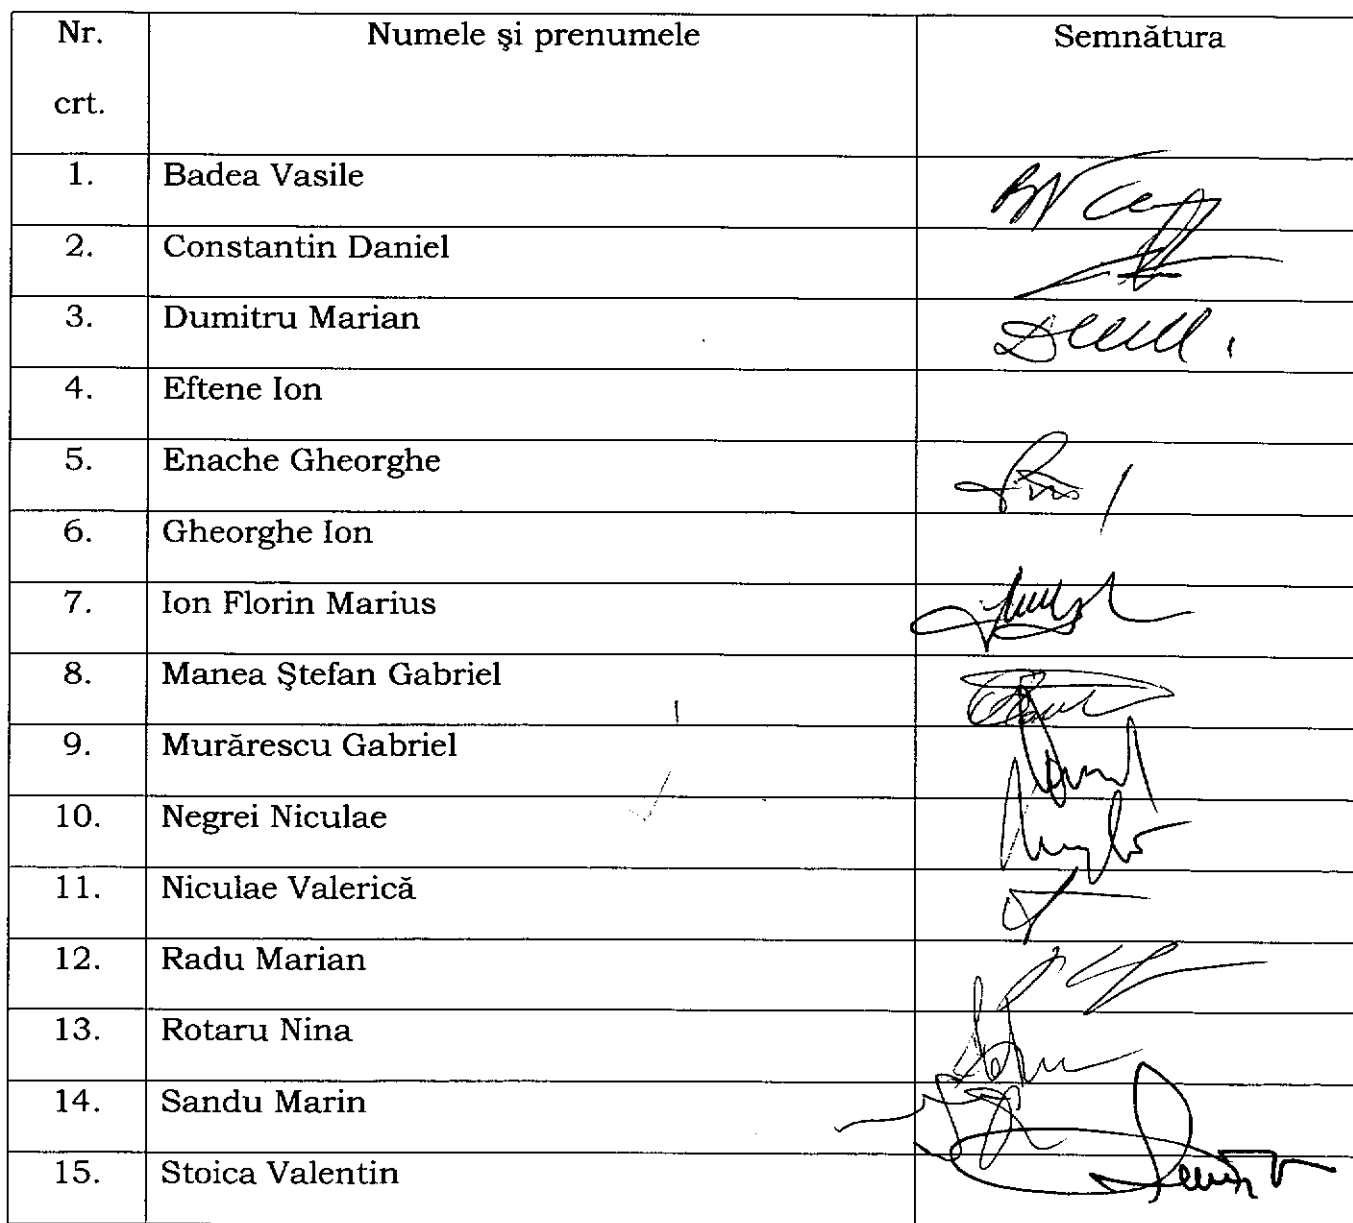 Nr. crt. Numele şi prenumele Semnătura
1. Badea Vasile
2. Constantin Daniel
3. Dumitru Marian
4. Eftene Ion
5. Enache Gheorghe
6. Gheorghe Ion
7. Ion Florin Marius
8. Manea Ştefan Gabriel
9. Murărescu Gabriel
10. Negrei Niculae
11. Niculae Valerică
12. Radu Marian
13. Rotaru Nina
14. Sandu Marin
15. Stoica Valentin